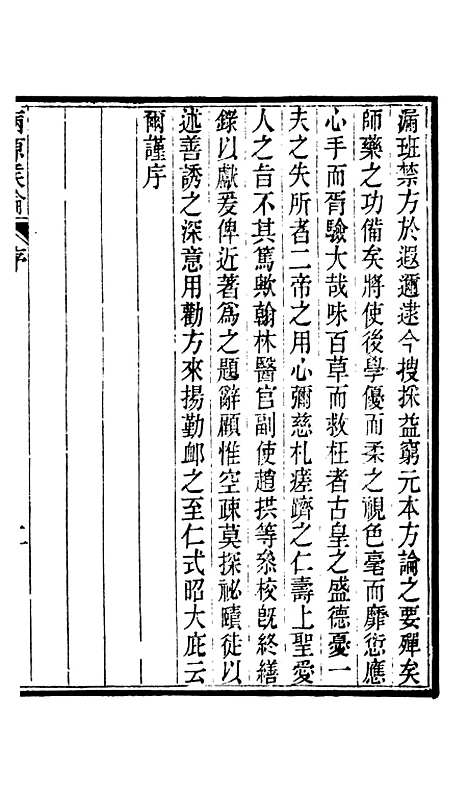 漏班禁方於遐邇逮今搜採益窮元本方論之要殫矣
師藥之功備矣將使後學優而柔之視色毫而靡愆應
心手而胥驗大哉味百草而救枉者古皇之盛德憂一
夫之失所者二帝之用心彌慈札瘥躋之仁壽上聖愛
人之旨不其篤歟翰林醫官副使趙拱等叅校旣終繕
錄以獻爰俾近著爲之題辭顧惟空疎莫探祕賾徒以
述善誘之深意用勸方來揚勤卹之至仁式昭大庇云
爾謹序
病源矦論
序
二